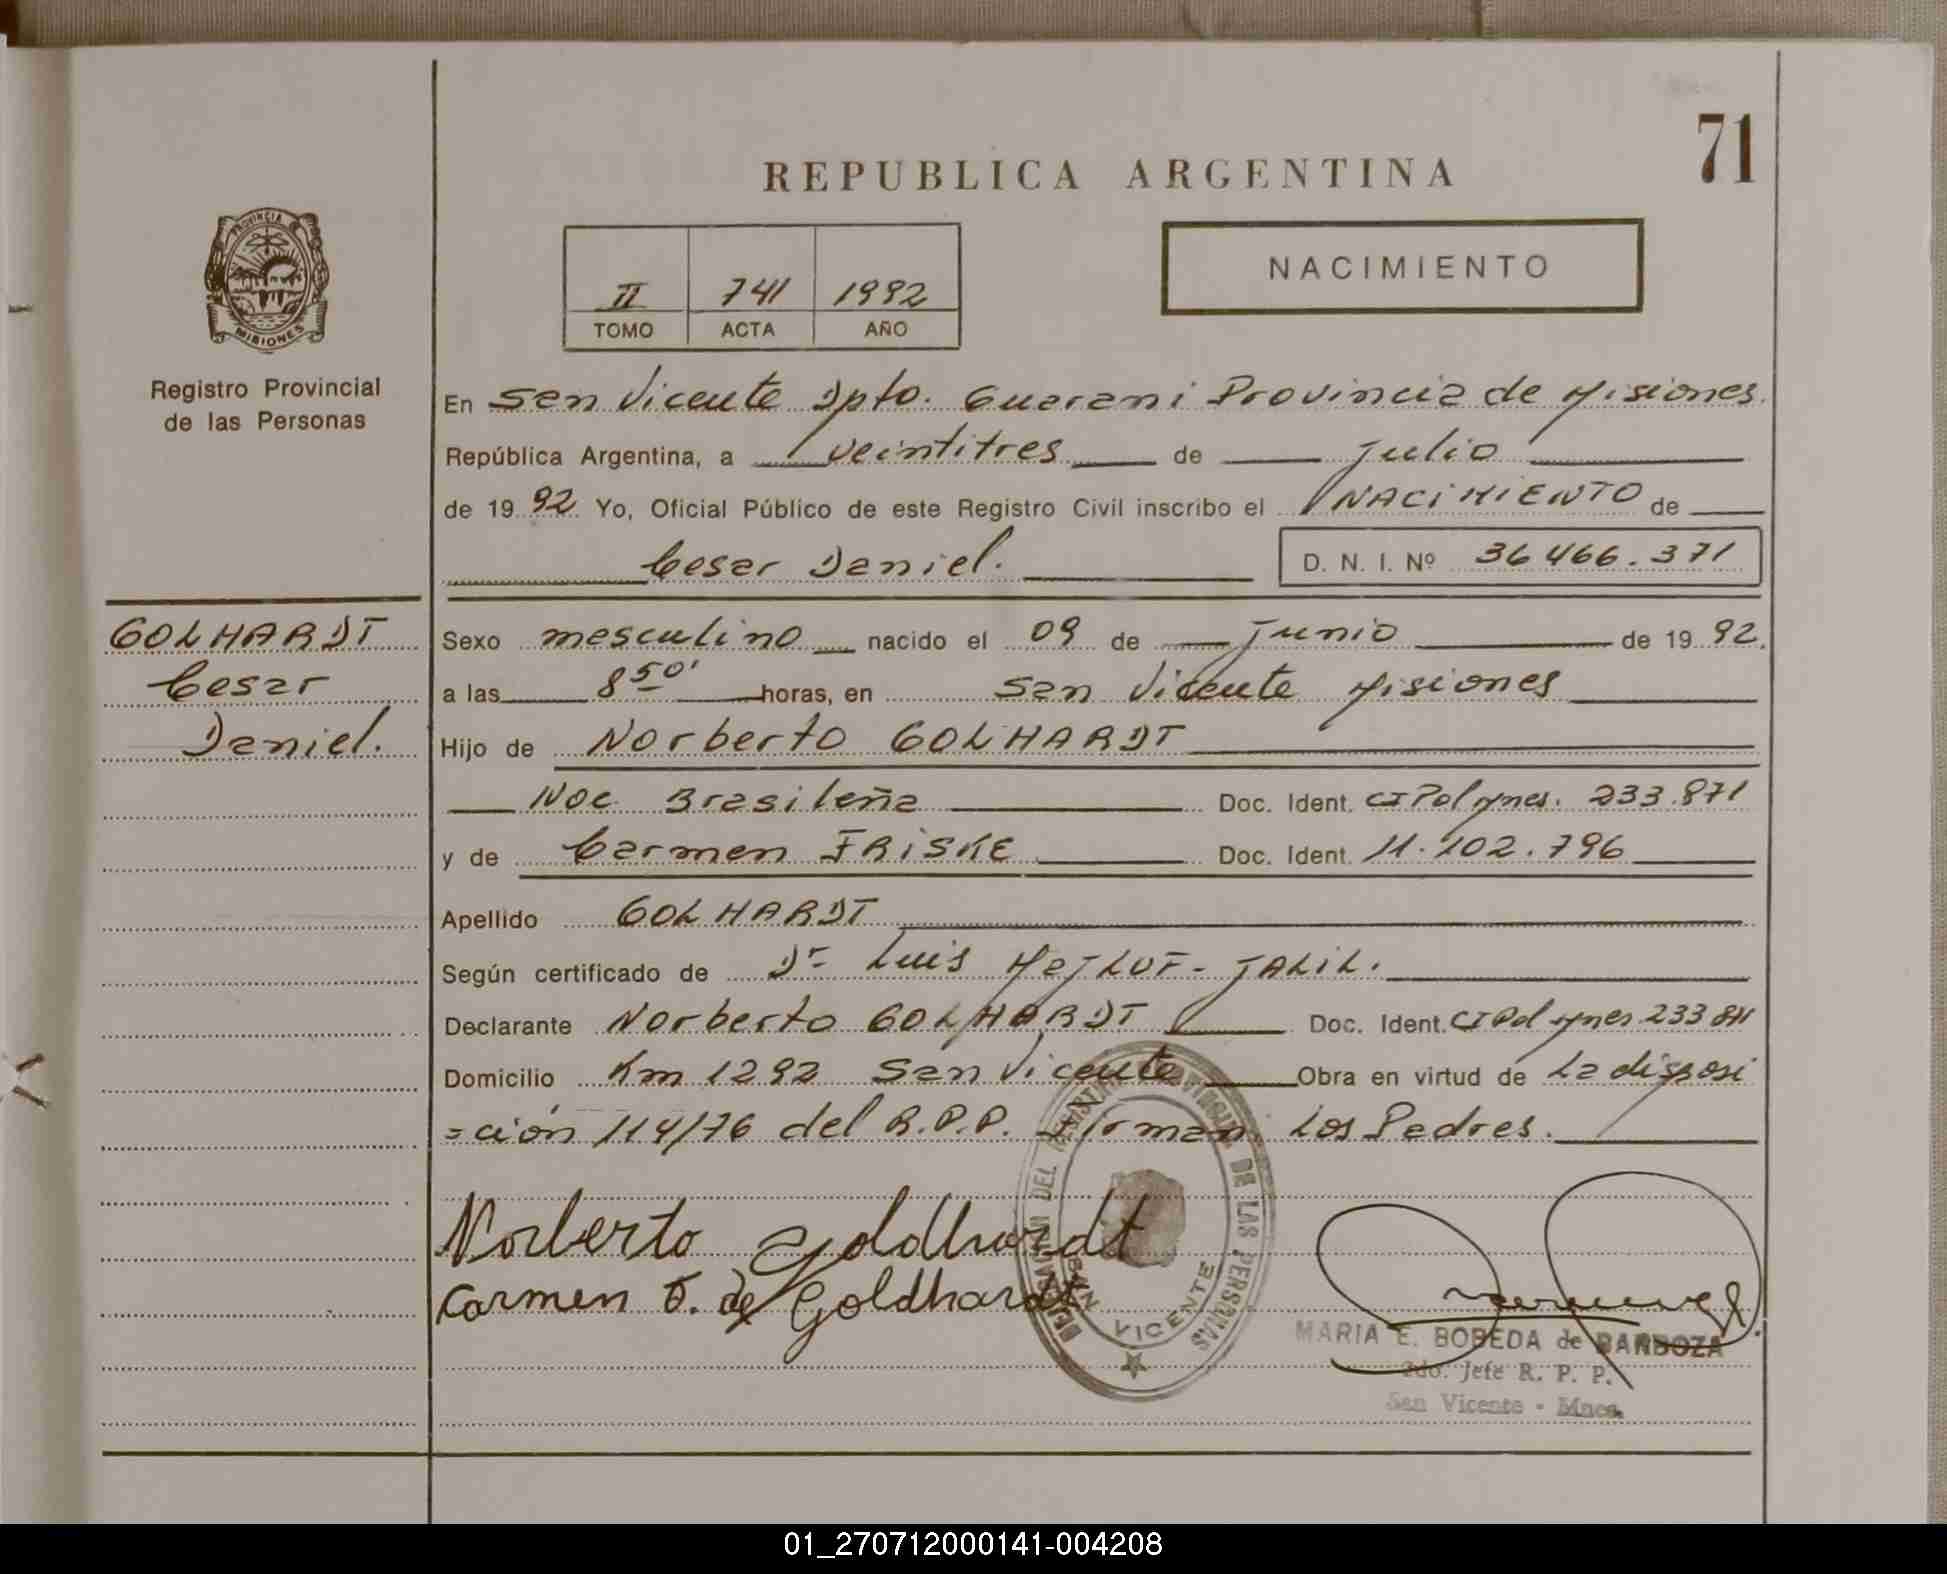 71
REPUBLICA ARGENTINA
PROVINCIA
MISIONES
Registro Provincial
de las Personas
II 741 1992
TOMO ACTA AÑO
NACIMIENTO
En San Vicente Dpto. Guarani Provincia de Misiones.
República Argentina, a veintitres de Julio
de 19 92. Yo, Oficial Público de este Registro Civil inscribo el NACIMIENTO de
Cesar Daniel.
D. N. I. Nº 36 466.371
GOLHARDT
Cesar
Daniel.
Sexo masculino nacido el 09 de Junio de 19 92.
a las 8 50' horas, en San Vicente Misiones
Hijo de Norberto GOLHARDT
Nac. Brasileña Doc. Ident. CI Pol Mnes. 233.871
y de Carmen FRISKE Doc. Ident. 11.102.796
Apellido GOLHARDT
Según certificado de Dr Luis MaJLUF-JALIL.
Declarante Norberto GOLHARDT Doc. Ident. CI Pol Mnes 233 871
Domicilio Km 1292 San Vicente Obra en virtud de La disposi
=ción 114/76 del R.P.P. Firman Los Padres.
Norberto Goldhardt
Carmen F. de Goldhardt
DEL REGISTRO PROVINCIAL DE LAS PERSONAS
SAN VICENTE
MARIA E. BOBEDA de BARBOZA
2do. Jefe R. P. P.
San Vicente - Mnes.
01_270712000141-004208